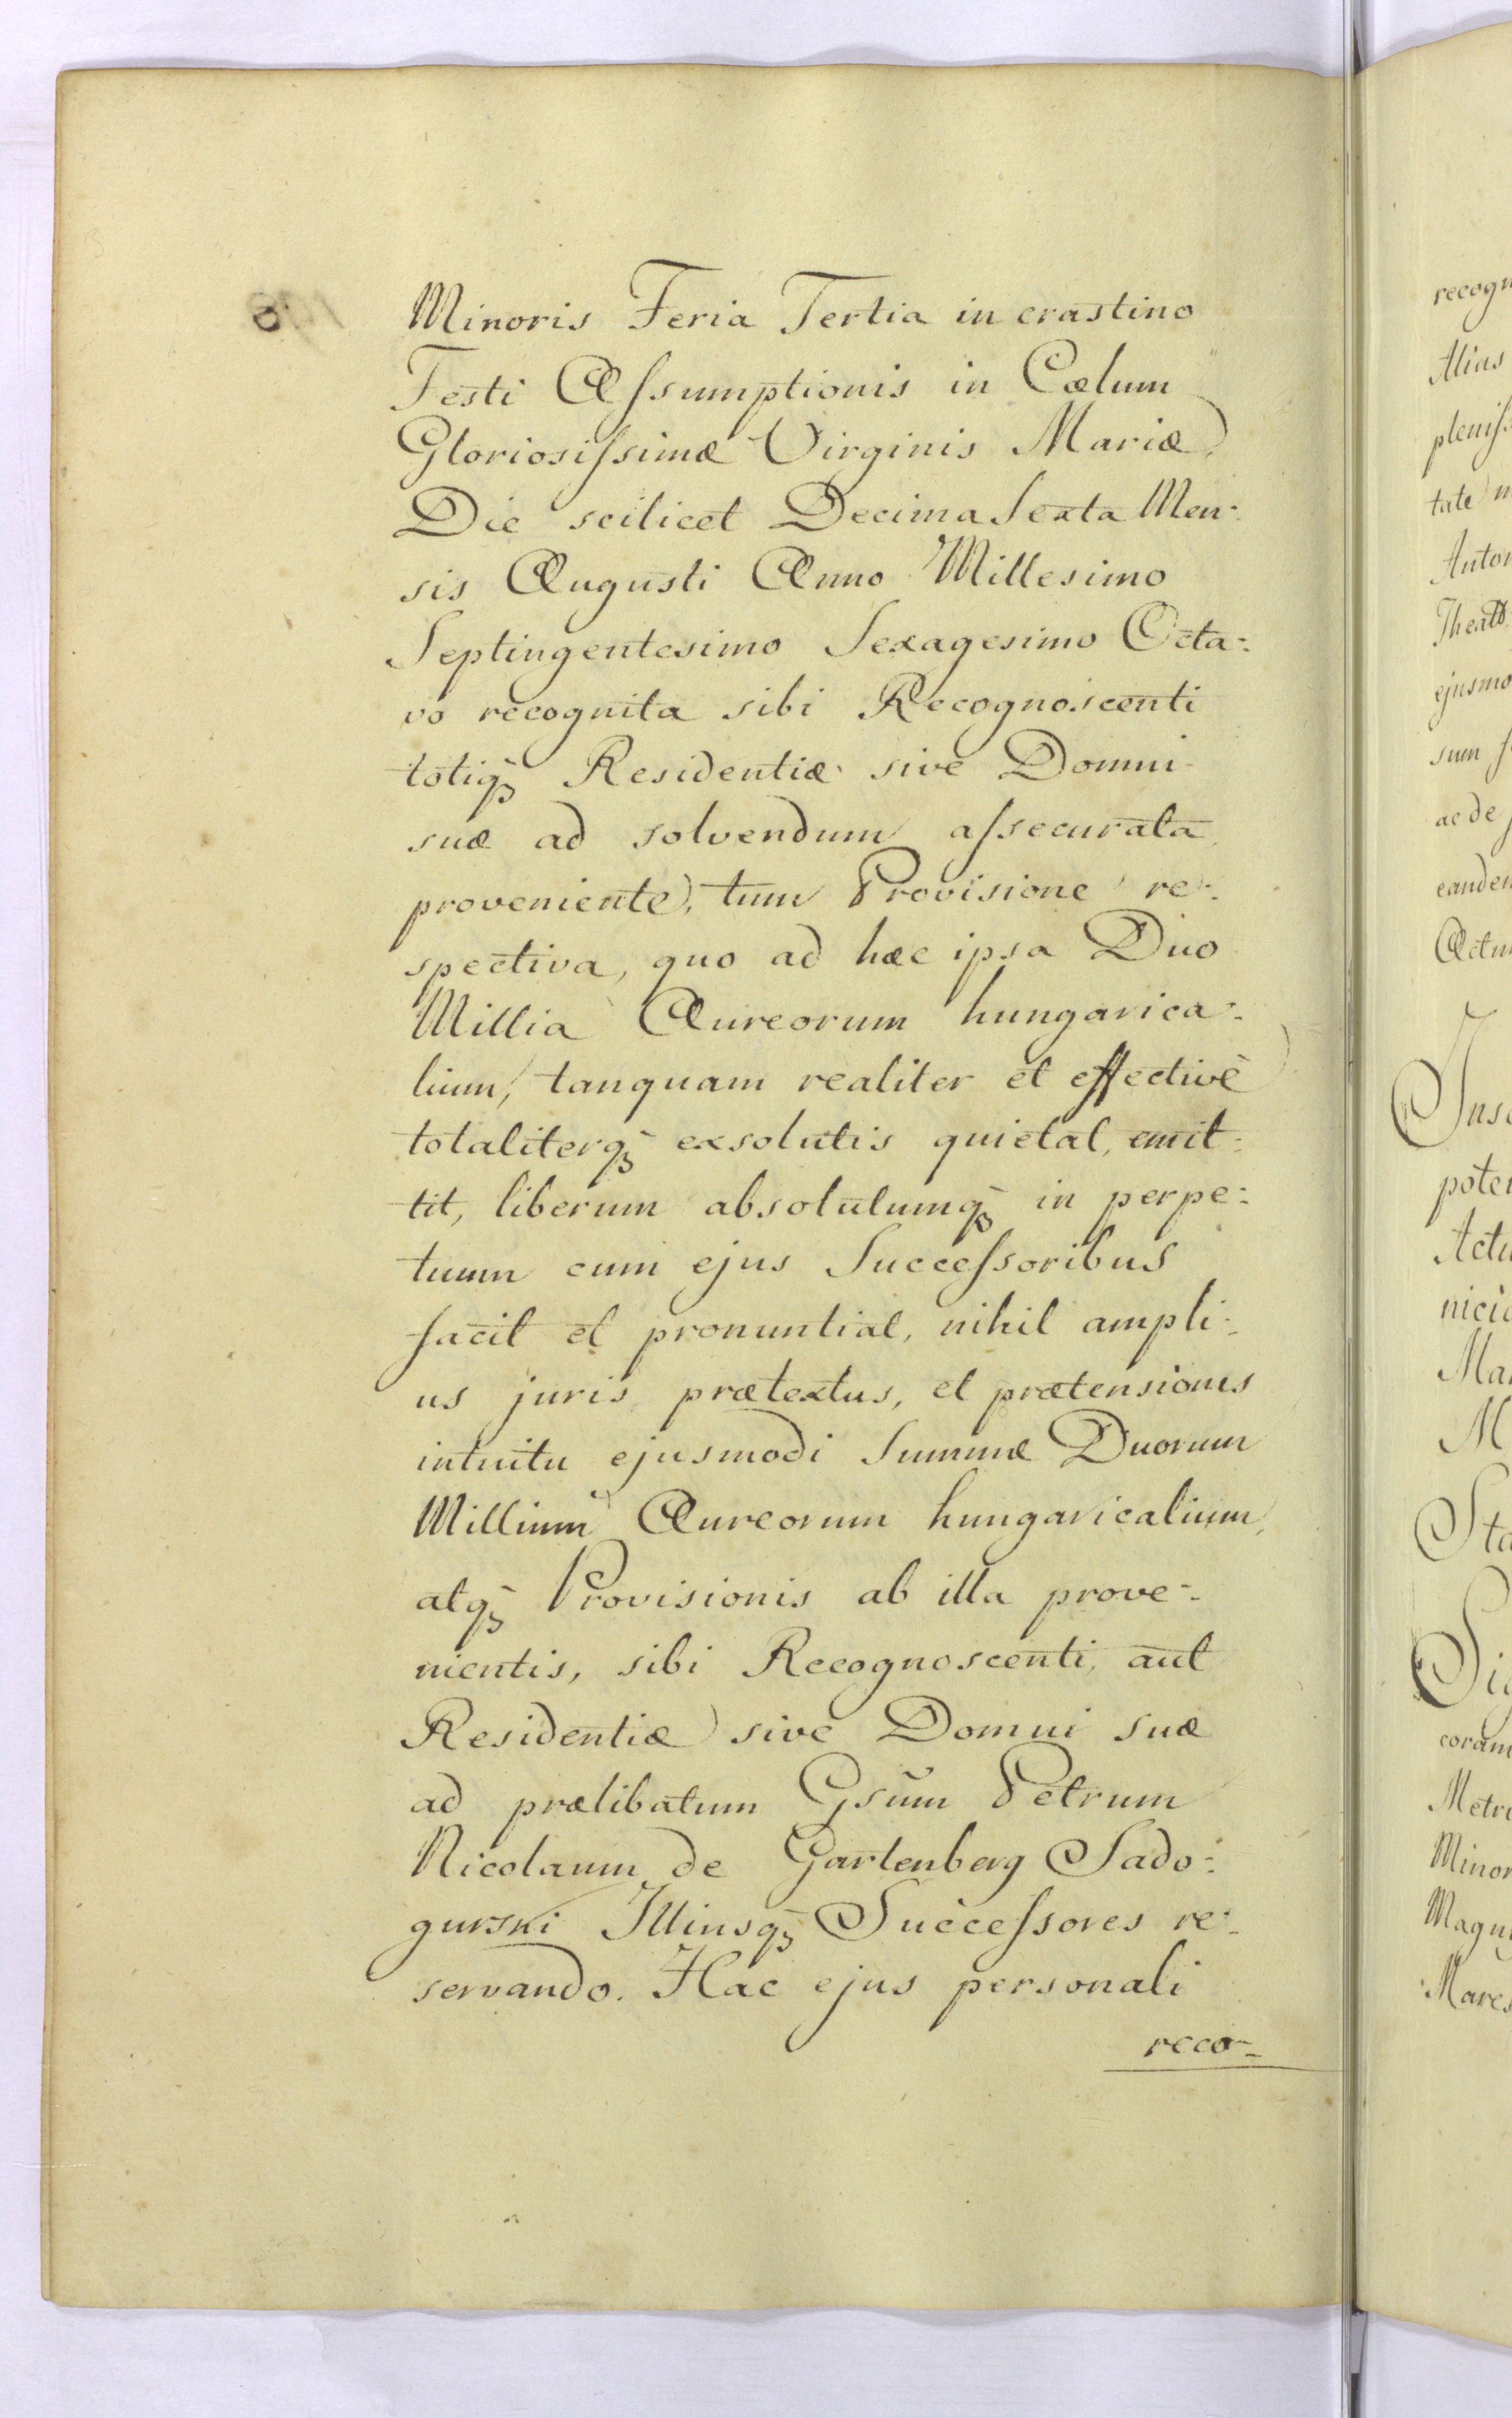 Minoris Feria Tertia in crastino
Festi Aſsumptionis in Cœlum
Gloriosiſsimæ Virginis Mariæ
Die scilicet Decima Sexta Men-
sis Augusti Anno Millesimo
Septingentesimo Sexagesimo Octa-
vo recognita sibi Recognoscenti
totiq Residentiæ sive Domui
suæ ad solvendum aſsecurata
proveniente, tum Provisione re-
spectiva, quo ad hæc ipsa Duo
Millia Aureorum hungarica-
lium, tanquam realiter et effectivè
totaliterq exsolutis quietat, emit-
tit, liberum absolutumq in perpe-
tuum cum ejus Succeſsoribus
facit et pronuntiat, nihil ampli-
us juris prætextus, et prætensionis
intuitu ejusmodi Summæ Duorum
Millium Aureorum hungaricalium,
atq Provisionis ab illa prove-
nientis, sibi Recognoscenti, aut
Residentiæ sive Domui suæ
ad prælibatum Gsum Petrum
Nicolaum de Gartenberg Sado-
gurski Illiusq Succeſsores re-
servando. Hac ejus personali
reco-
recogn
Alias
pleniſs
tate
Anton
ejusmo
sum
ac de
eandem
Actu
poten
Actu
Mar
M
Sta
Sig
coram
Metr
Minor
Magn
Mares